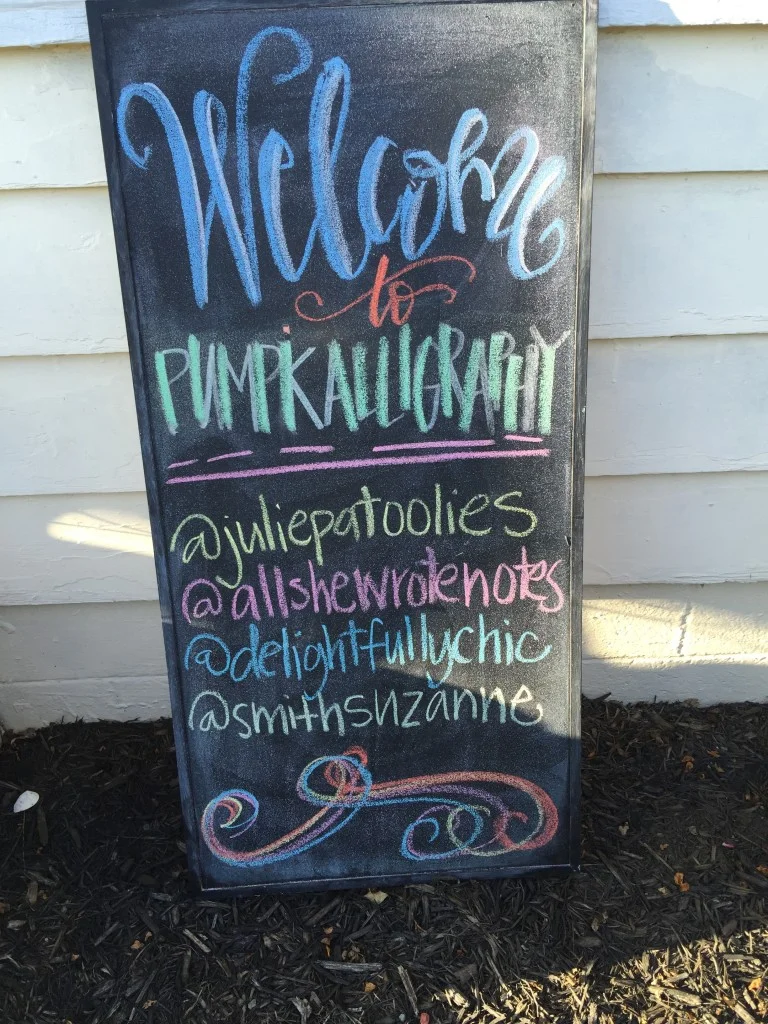 Welcome
to
PUMPKALLIGRAPHY
@juliepatoolies
@allshewrotenotes
@delightfullychic
@smithsuzanne